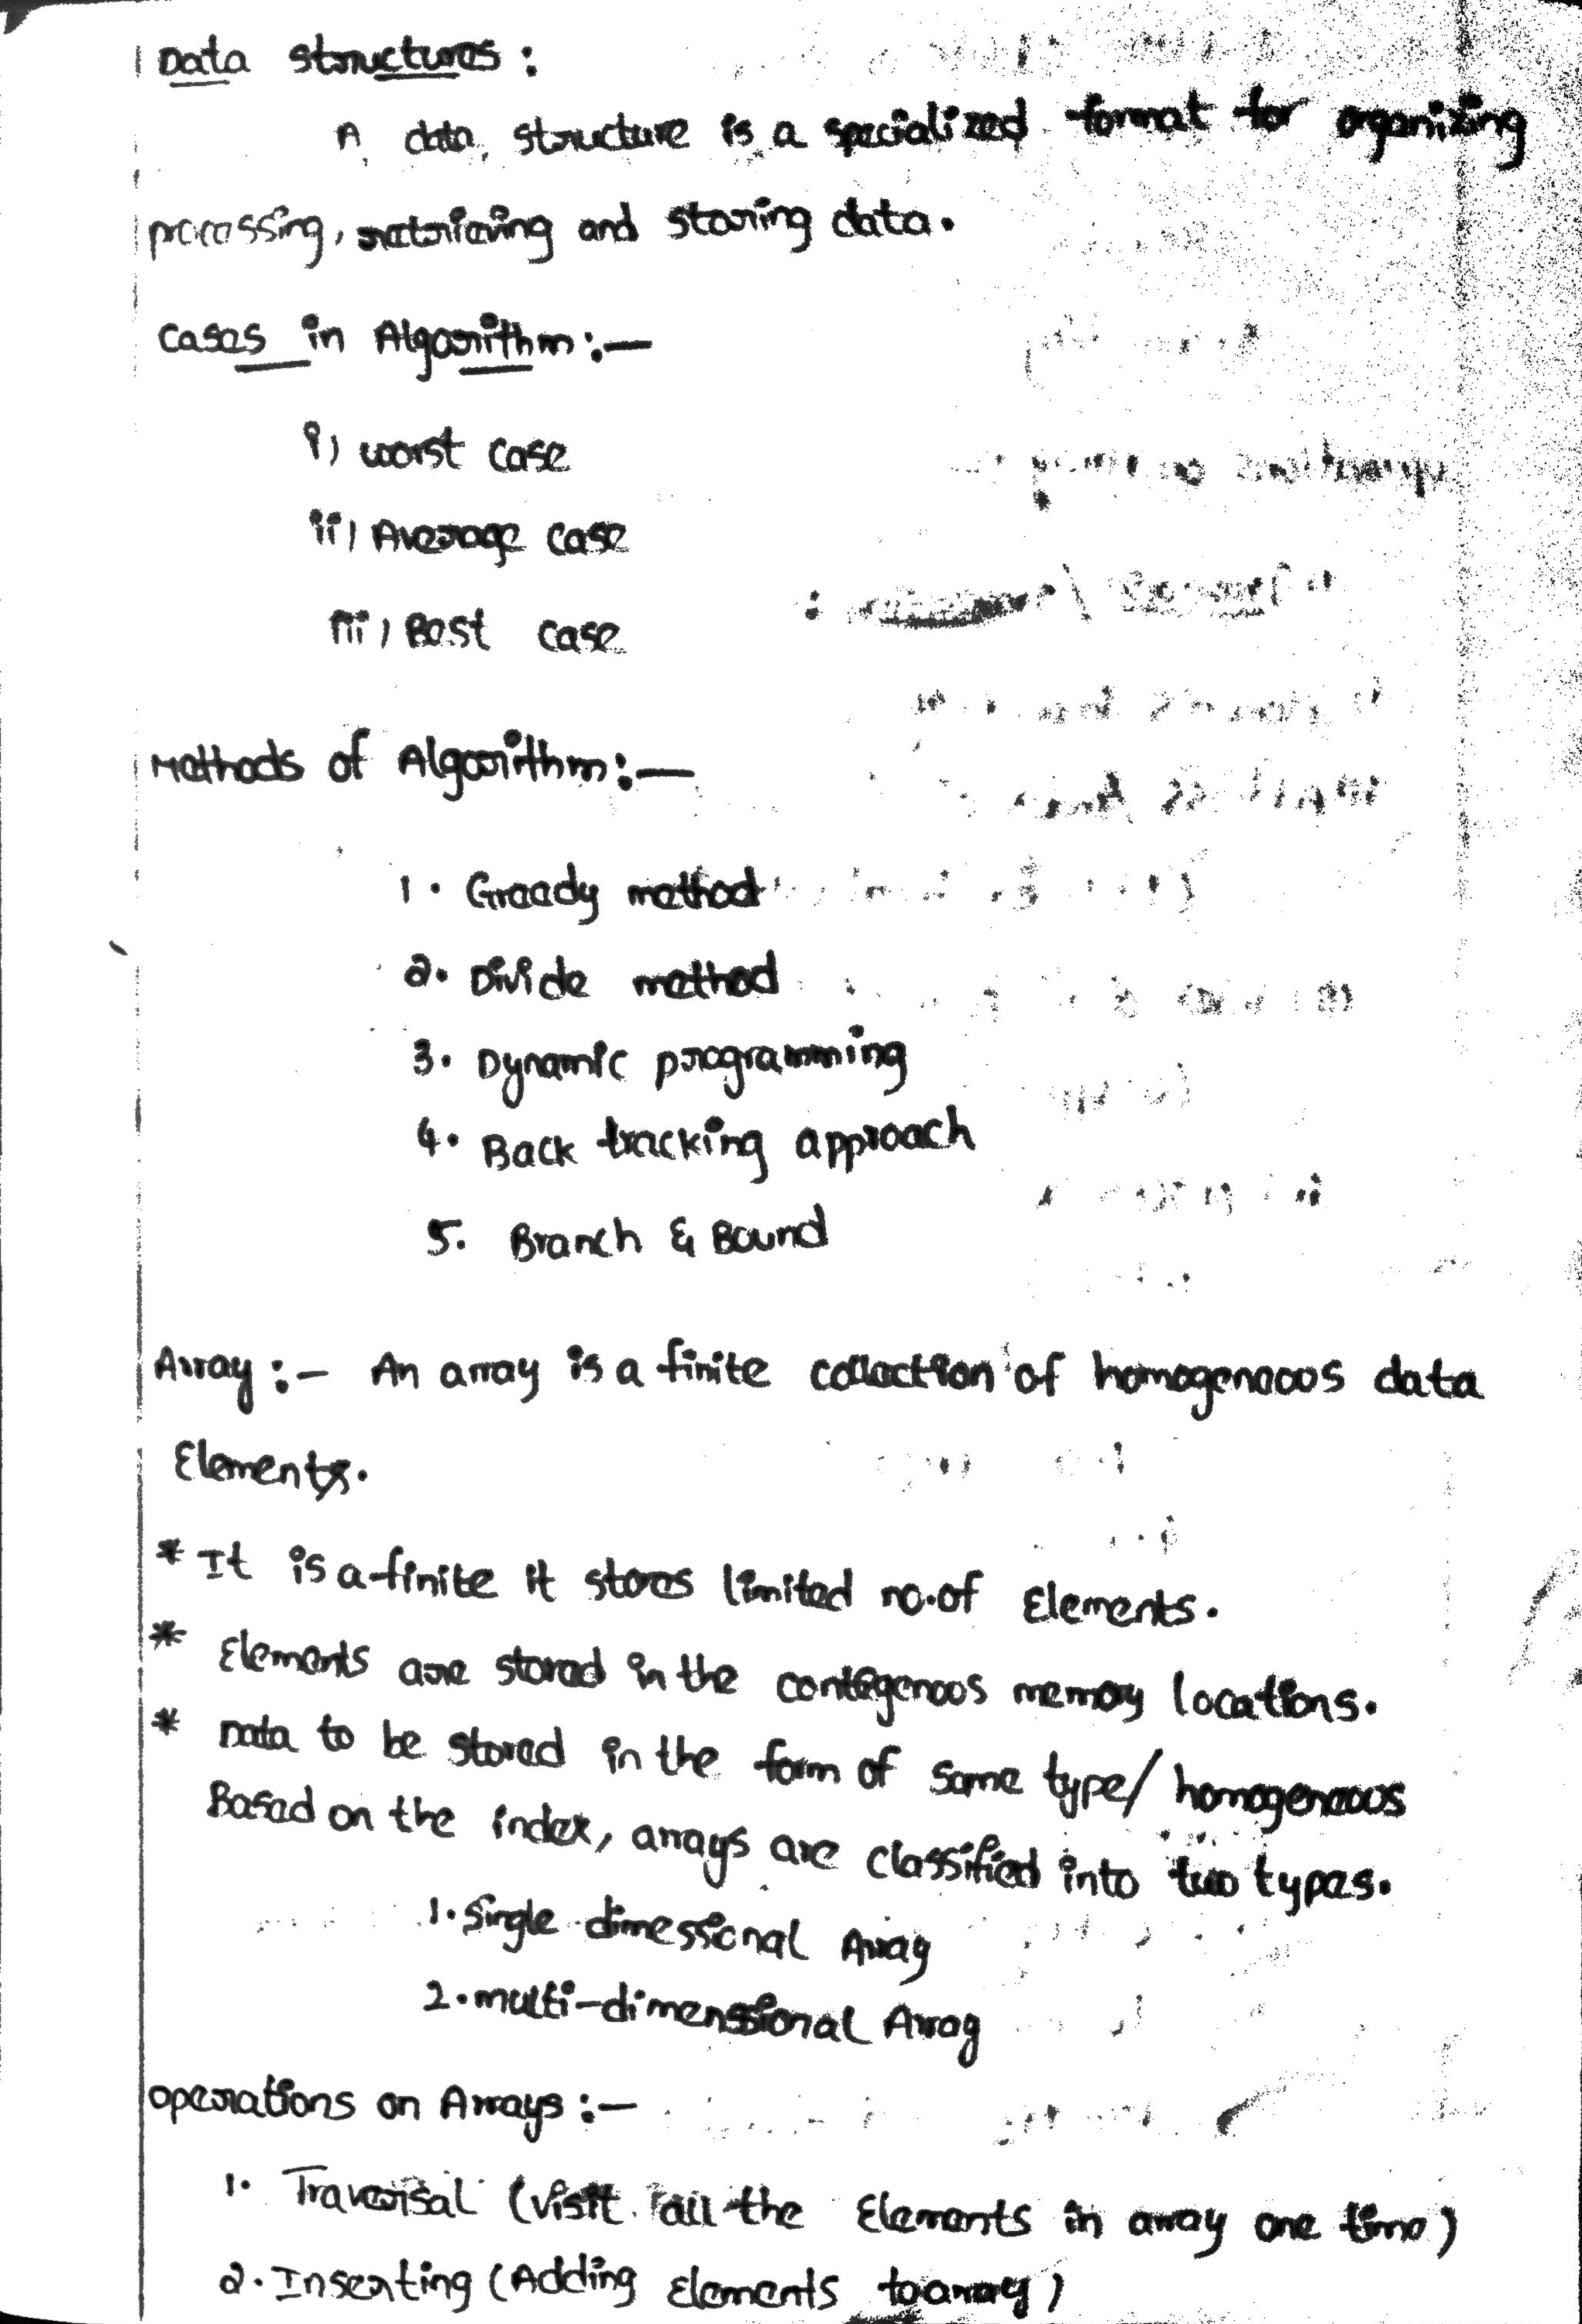 Data structures :
A data, structure is a specialized format for organizing
processing, retrieving and storing data.
Cases in Algorithm :-
i) worst case
ii) Average case
iii) Best case
Methods of Algorithm :-
1. Greedy method
2. Divide method
3. Dynamic programming
4. Back tracking approach
5. Branch & Bound
Array :- An array is a finite collection of homogeneous data
Elements.
* It is a finite it stores limited no.of Elements.
* Elements are stored in the contegenoos memory locations.
* Data to be stored in the form of same type/ homogeneous
Based on the index, arrays are classified into two types.
1. Single dimessional Array
2. multi-dimenssional Array
operations on Arrays :-
1. Traversal (visit all the Elements in array one time)
2. Inserting (Adding Elements to array)